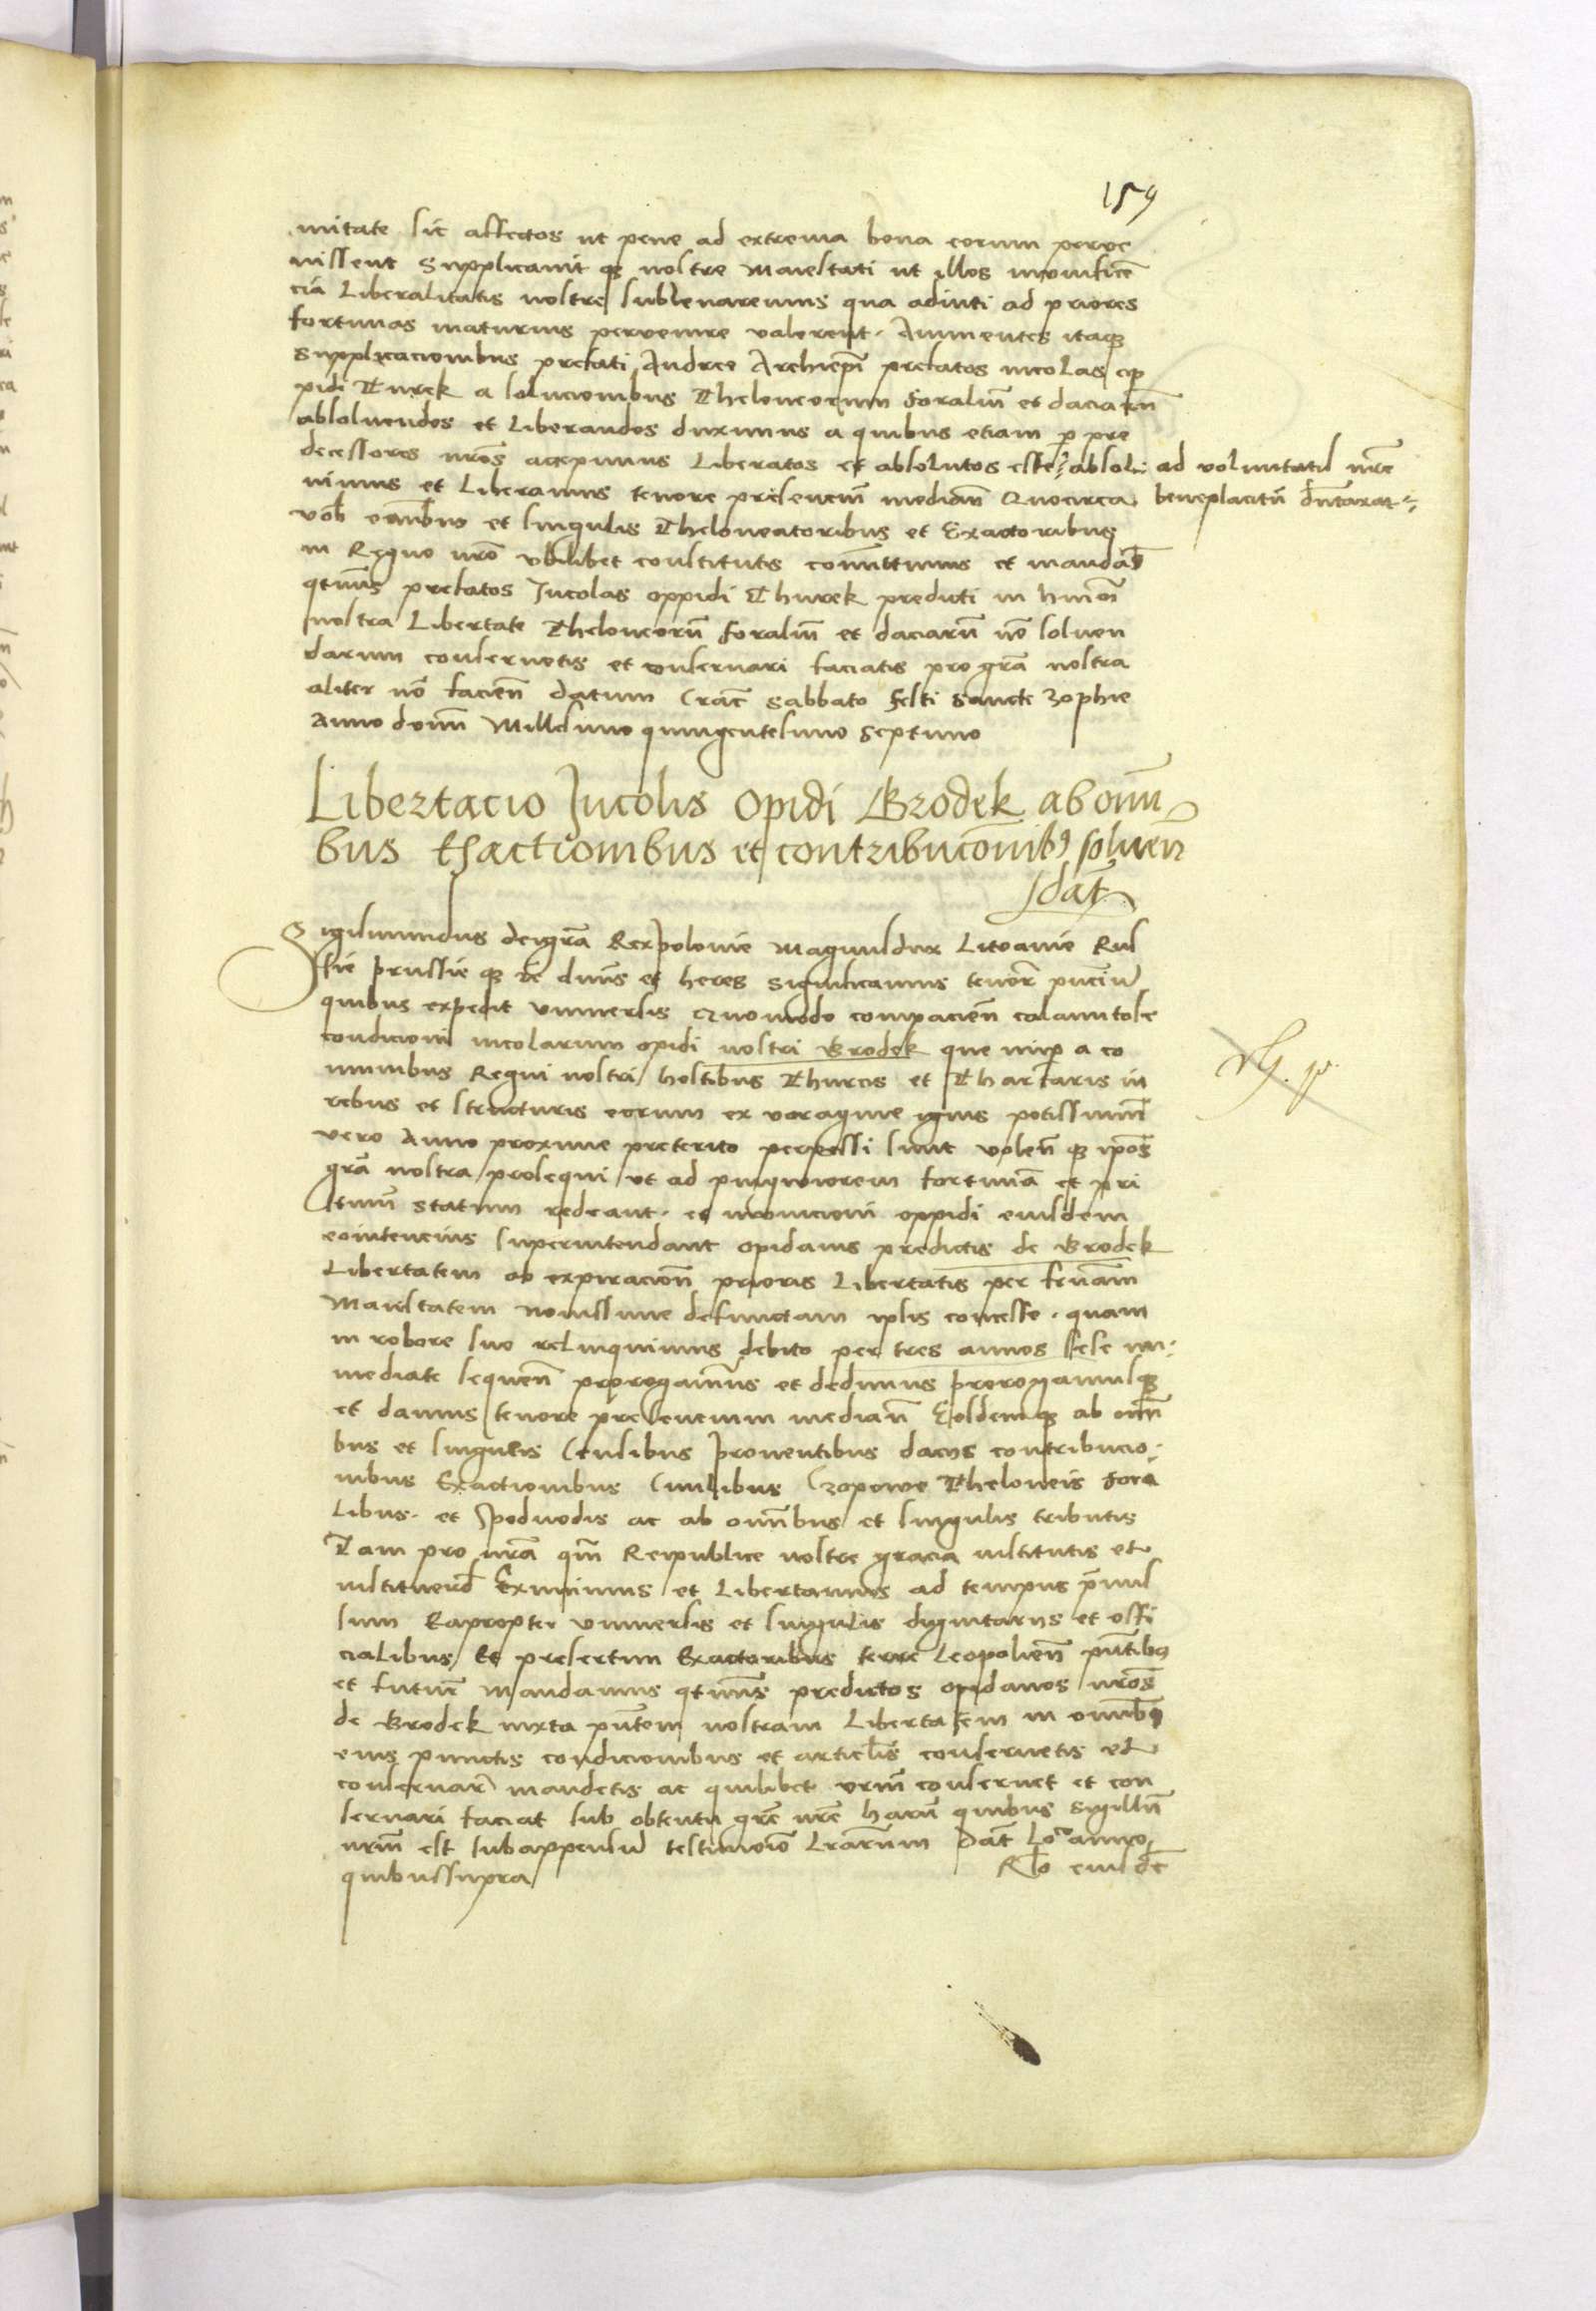 159
mitate sic affectos ut pene ad extrema bona eorum perve
nissent Supplicavit q3 nostre Maiestati ut illos munificē
cia Liberalitatis nostre sublevaremus qua adiuti ad priores
fortunas maturius pervenire valerent. Annuentes itaq3
supplicacionibus prefati Andree Archiepī prefatos incolas op
pidi Turek a solucionibus Theloneorum foraliū et daciarū
absolvendos et Liberandos duximus a quibus etiam p pre
decessores nrōs accepimus Liberatos et absolutos esse absol
ad voluntatis nrē
vimus et Liberamus tenore presenciū mediañ Quocirca
beneplacitū dūtaxat
vob omībus et singulis Theloneatoribus et Exactoribus
in Regno nrō ubilibet constitutis comittimus et mandam
qtinus prefatos Incolas oppidi Thurek predicti in hmōi
nostra Libertate Theloneorū foraliū et daciarū nō solven
darum conservetis et conservari faciatis pro grā nostra
aliter nō facieñ datum Crac Sabbato festi Sancte Zophie
Anno domī Millesimo quingentesimo Septimo
Libertacio Incolis Opidi Brodek ab omī
bus exactionibus et contribucōnib9 solven
dat
Sigismundus dei grā Rex polonie Magnus dux Litvanie Rus
sie prussie q3 etc dnūs et heres Significamus tenor pñciū
quibus expedit universis Quomodo compacieñ calamitose
condicioni incolarum opidi nostri Brodek que nup a co
munibus Regni nostri hostibus Thurcis et Thartaris in
rebus et structuris eorum ex voragine ignis potissimū
vero Anno proxime preterito perpessi sunt voleñ q3 ipōs
grā nostra prosequi ut ad pinguiorem fortunā et pri
stinū statum redeant. et municioni oppidi eiusdem
eo intencius superintendant opidanis predictis de Brodek
Libertatem ab expiracioñ prioris Libertatis per sereniam
Maiestatem novissime defunctam ipsis concesse. quam
in robore suo relinquimus debito per tres annos sese im
mediate sequeñ prorogavimus et dedimus prorogamusq3
et damus tenore presencium mediañ Eosdemq3 ab omī
bus et singulis Censibus proventibus daciis contribucio
nibus Exactionibus Civilibus Czopowe Theloneis fora
Libus. et podvodis ac ab omībus et singulis tributis
Tam pro nrā qm̄ Reipublice nostre gracia institutis et
instituend Eximimus et Libertamus ad tempus premis
sum Eapropter universis et singulis dignitariis et offi
cialibus Et presertim Exactoribus terre Leopolieñ pñtibus
et futur mandamus qtinus predictos opidanos nrōs
de Brodek iuxta pñtem nostram Libertatem in omīb9
eius punctis condicionibus et articlis conservetis et
conservari mandetis ac quilibet vrm̄ conservet et con
servari faciat sub obtentu grē nrē harū quibus Sigillū
nrm̄ est subappensum testimonio Lrārum Dat Lo anno
quibus supra
Rlo eiusdē